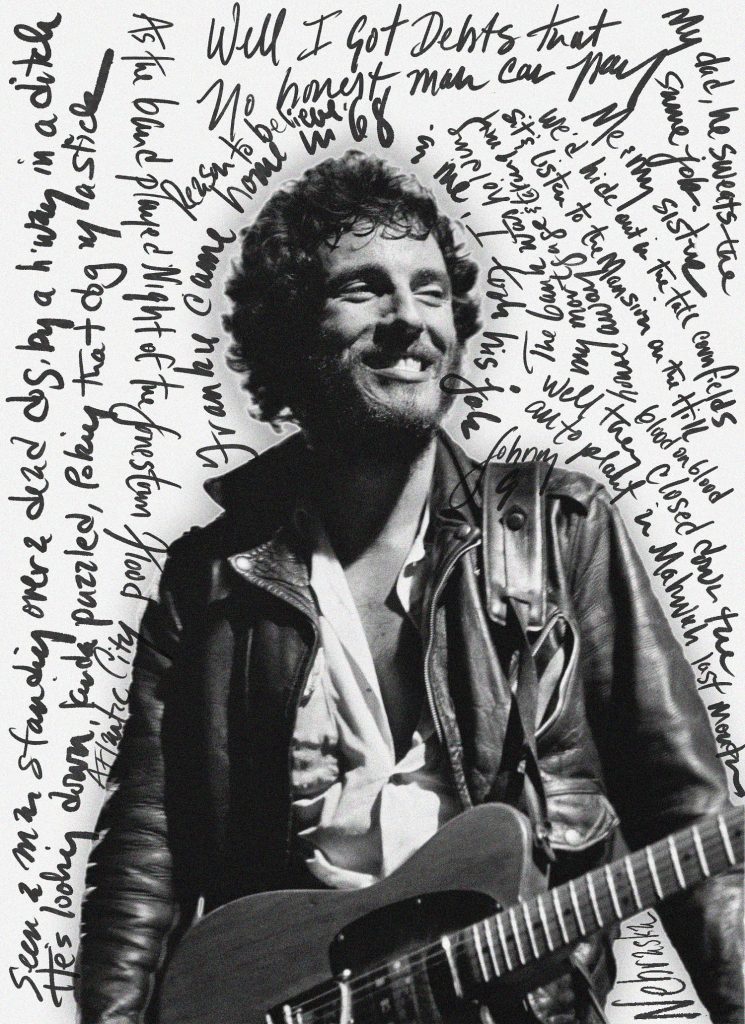 Well I Got Debts that
No honest man can pay
Seen a man standing over a dead dog, by a h'way in a ditch
He's looking down, kinda puzzled, Poking that dog w/ a stick
Reason to believe.
As the band played Night of the Jonestown Flood
Atlantic City
Franky came home in '68
My dad, he sweats the
same job.
Me & my sister
we'd hide out in the tall cornfields
sit & listen to the Mansion on the Hill
blood on blood
Well they closed down the
auto plant in Mahwah last month
Johnny
9
Nebraska